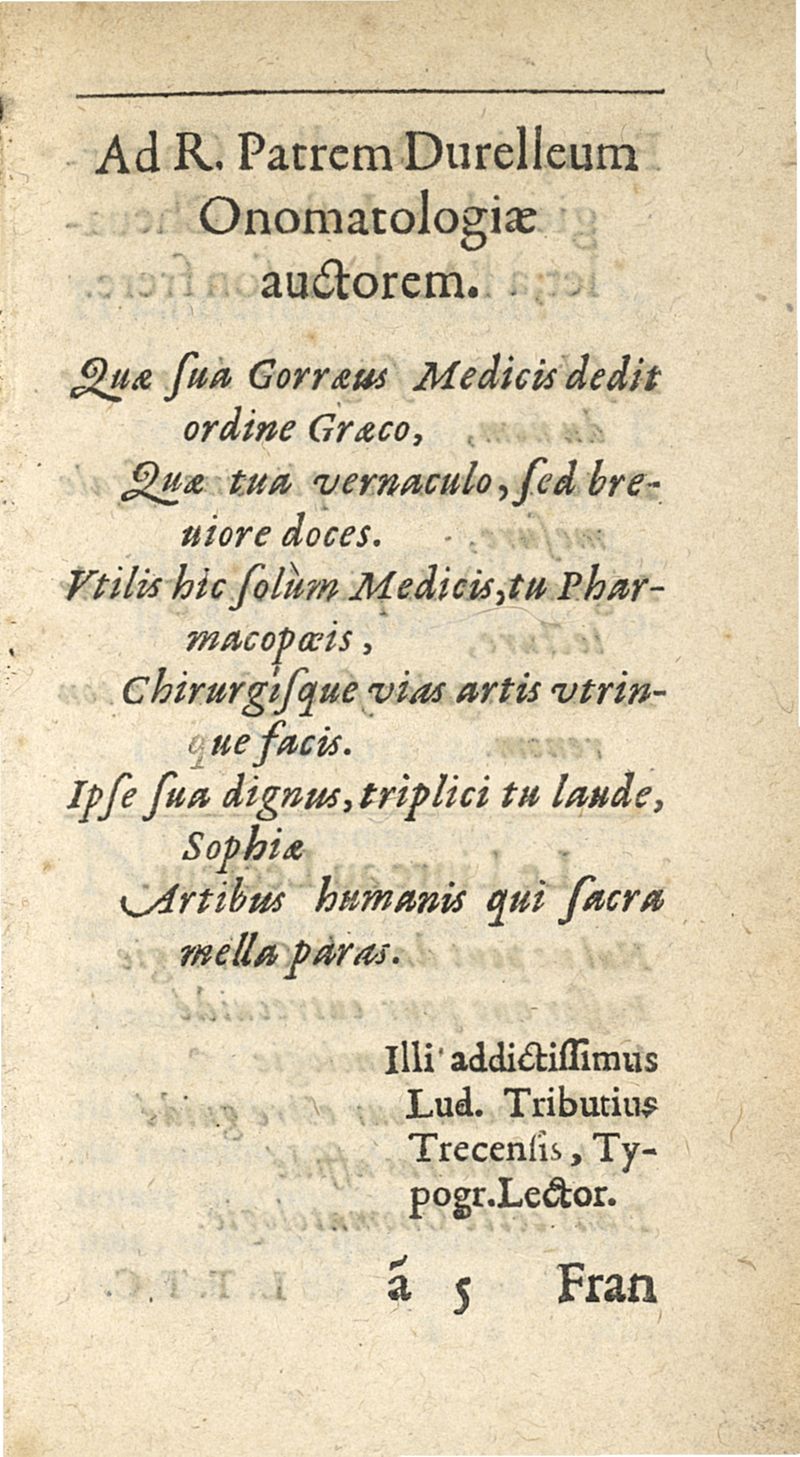 Ad R. Patrem Durelleum
Onomatologiæ
auctorem.
Quæ ſua Gorræus Medicis dedit
ordine Græco,
Quæ tua vernaculo, ſed bre-
uiore doces.
Vtilis hic ſolùm Medicis, tu Phar-
macopœis,
Chirurgiſque vias artis vtrin-
que facis.
Ipſe ſua dignus, triplici tu laude,
Sophiæ
Artibus humanis qui ſacra
mella paras.
Illi addictiſſimus
Lud. Tributius
Trecenſis, Ty-
pogr. Lector.
ã 5 Fran